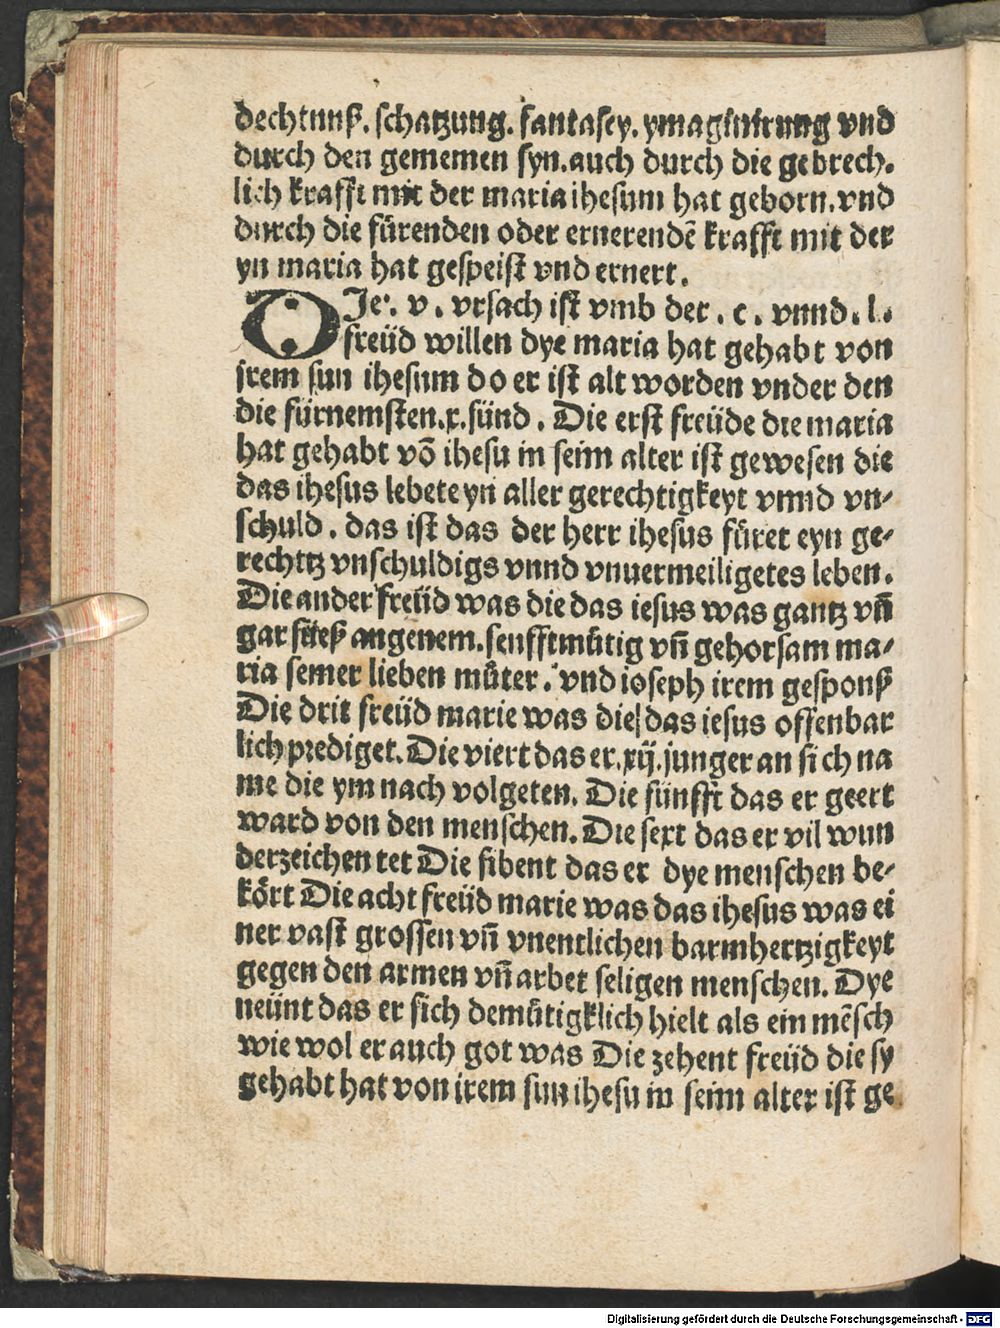 dechtnuß. schatzung. fantasey. ymaginirung vnd
durch den gemeinen syn. auch durch die gebrech.
lich krafft mit der maria ihesum hat geborn. vnd
durch die fürenden oder ernerendē krafft mit der
yn maria hat gespeist vnd ernert.
DJe. v. vrsach ist vmb der. c. vnnd. l.
freüd willen dye maria hat gehabt von
jrem sun ihesum do er ist alt worden vnder den
die fürnemsten. x. sünd. Die erst freüde die maria
hat gehabt vō ihesu in seim alter ist gewesen die
das ihesus lebete yn aller gerechtigkeyt vnnd vn⸗
schuld. das ist das der herr ihesus füret eyn ge⸗
rechttz vnschuldigs vnnd vnuermeiligetes leben.
Die ander freüd was die das iesus was gantz vñ
gar süeß angenem. senfftmütig vñ gehorsam ma⸗
ria seiner lieben müter. vnd ioseph irem gesponß
Die drit freüd marie was die das iesus offenbar
lich prediget. Die viert das er. xij. junger an sich na
me die ym nach volgeten. Die fünfft das er geert
ward von den menschen. Die sext das er vil wun
derzeichen tet Die sibent das er dye menschen be⸗
kört Die acht freüd marie was das ihesus was ei
ner vast grossen vñ vnentlichen barmhertzigkeyt
gegen den armen vñ arbet seligen menschen. Dye
neünt das er sich demütigklich hielt als ein mēsch
wie wol er auch got was Die zehent freüd die sy
gehabt hat von irem sun ihesu in seim alter ist ge
Digitalisierung gefördert durch die Deutsche Forschungsgemeinschaft - DFG